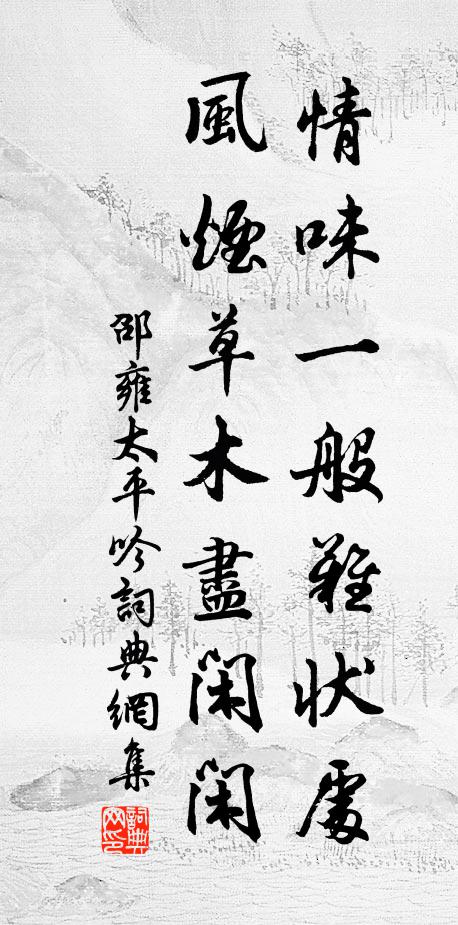 情味一般難狀處
風煙草木盡閑閑
邵雍太平吟詞典網集
詞典網印